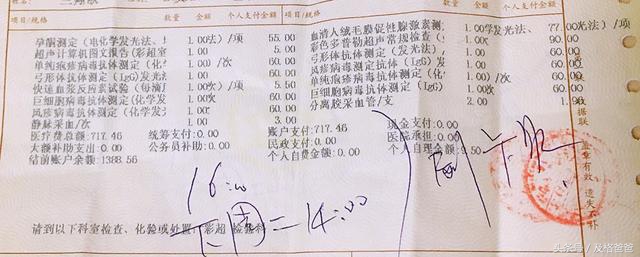 项目/规格 数量 金额 个人支付金额 项目/规格 数量 金额 个人支付金额
孕酮测定(电化学发光法)/项 1.00 55.00 血清人绒毛膜促性腺激素测 1.00 77.00
超声计算机图文报告(彩超室 1.00 5.00 彩色多普勒超声常规检查( 1.00 90.00
单纯疱疹病毒抗体测定(化 1.00/次 60.00 弓形体抗体测定(发光法) 1.00 60.00
弓形体抗体测定(IgG)发光 1.00 60.00 风疹病毒抗体测定(IgG) 1.00 60.00
快速血浆反应素试验(每滴 1.00 5.50 单纯疱疹病毒抗体测定(化 1.00 60.00
巨细胞病毒抗体测定(化学发 1.00 60.00 巨细胞病毒抗体测定(化学发 1.00 60.00
风疹病毒抗体测定(化学发 1.00 60.00 分离胶采血管/支 2.00
静脉采血/次 1.00 3.00
医疗费总额:717.46 统筹支付:0.00 账户支付:717.46 现金支付:0.00
大额补助支出:0.00 公务员补助:0.00 民政支付:0.00 医院承担:0.00
结前账户余额:1388.56 个人自费金额:0.00 个人自理金额:9.50
16:00
下周二 14:00
请到以下科室检查、化验或处置:彩超 检验科
据联
盖章有效 遗失不补
头条号/及格爸爸